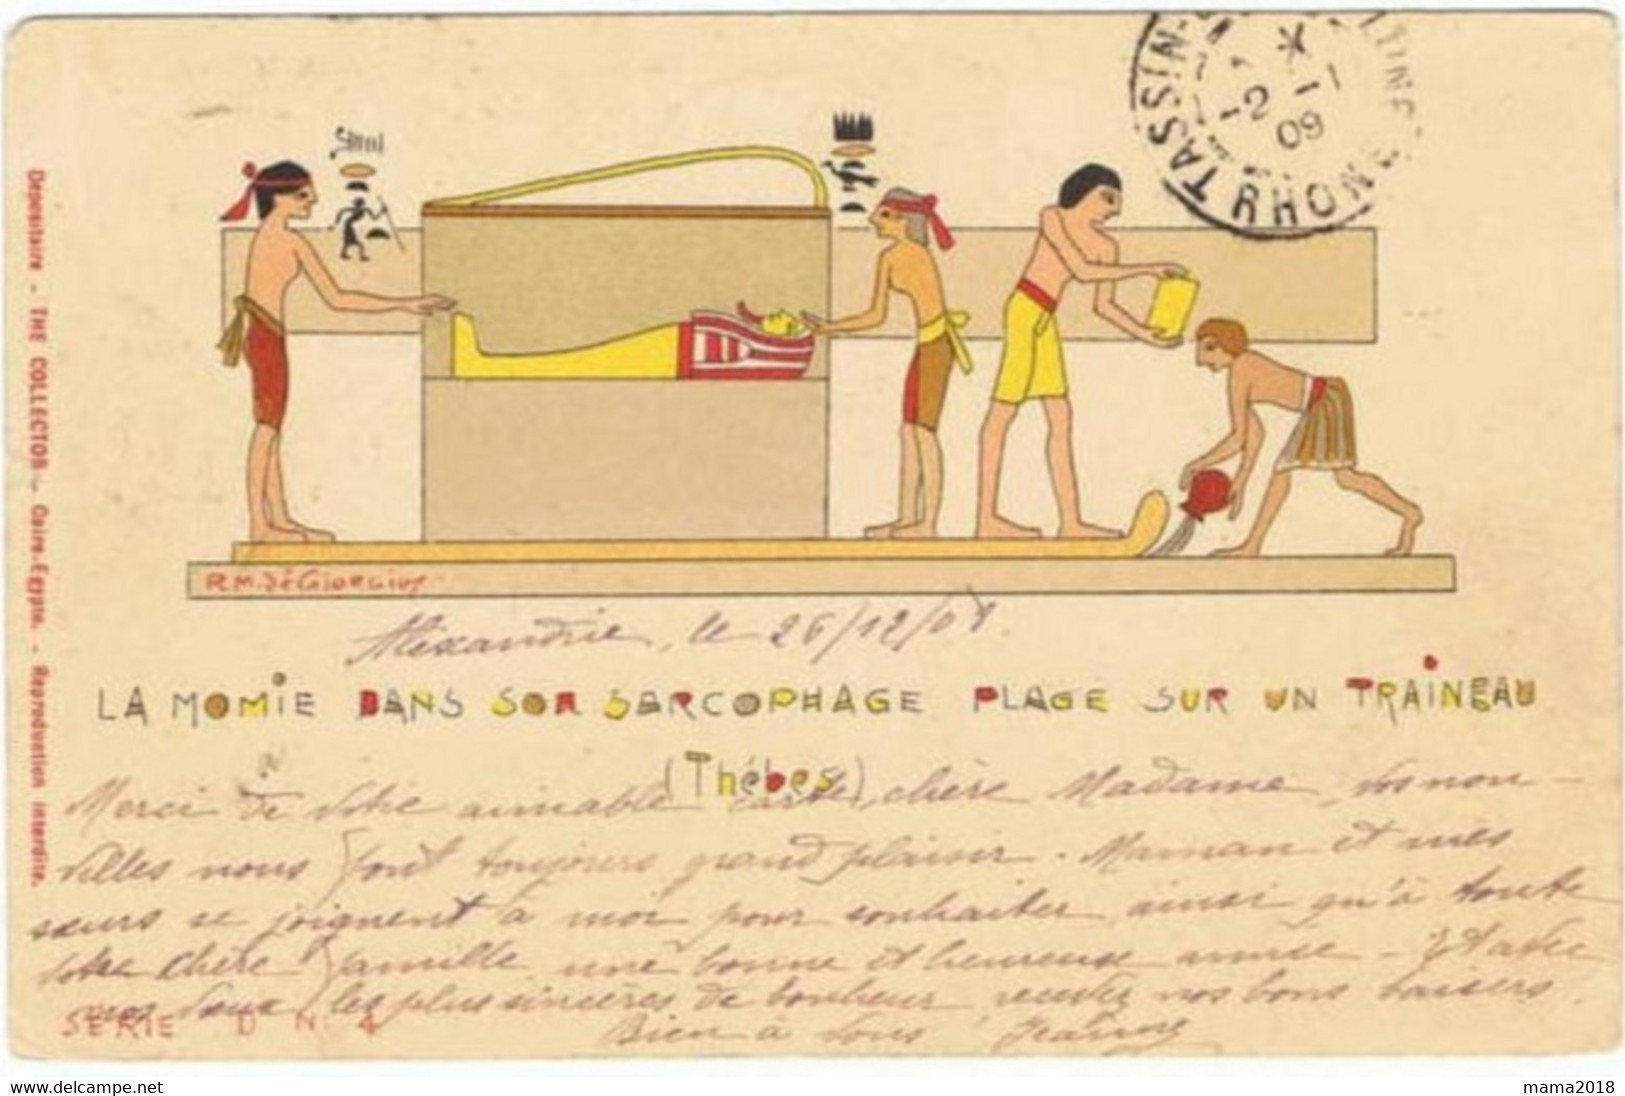 TASSIN-
RHONE
* 2 -1
09
Dépositaire - THE COLLECTOR - Caire-Egypte. - Reproduction interdite.
R.M. De Giorgios
Alexandrie, le 26/12/08.
LA MOMIE DANS SON SARCOPHAGE PLACE SUR UN TRAINEAU
(Thébes)
Merci de votre aimable carte, chère Madame, vos nou-
velles nous font toujours grand plaisir. Maman et mes
sœurs se joignent à moi pour souhaiter, ainsi qu'à toute
votre chère famille, une bonne et heureuse année - Et avec
mes vœux les plus sincères de bonheur, recevez nos bons baisers.
SERIE D N. 4
Bien à vous
www.delcampe.net
mama2018